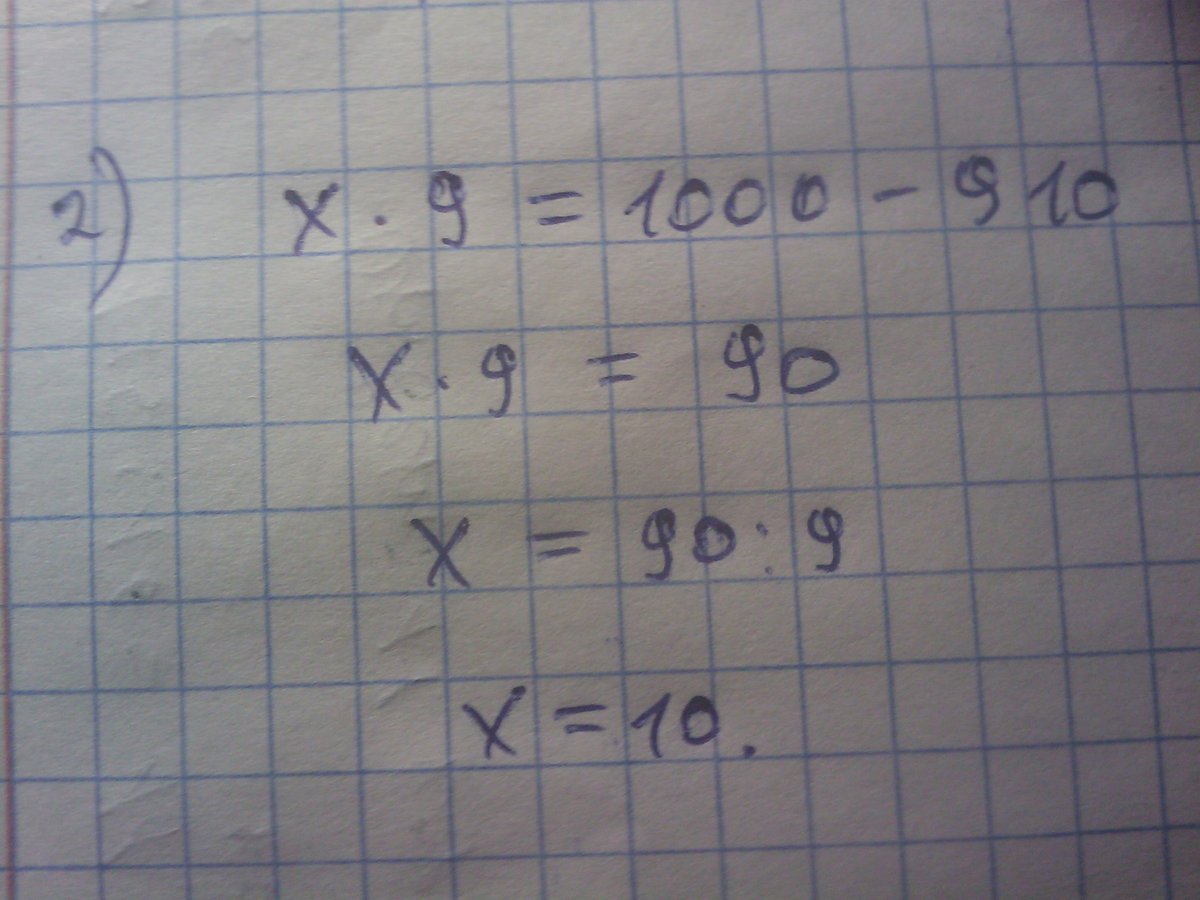 2) x · 9 = 1000 - 910
x · 9 = 90
x = 90 : 9
x = 10.